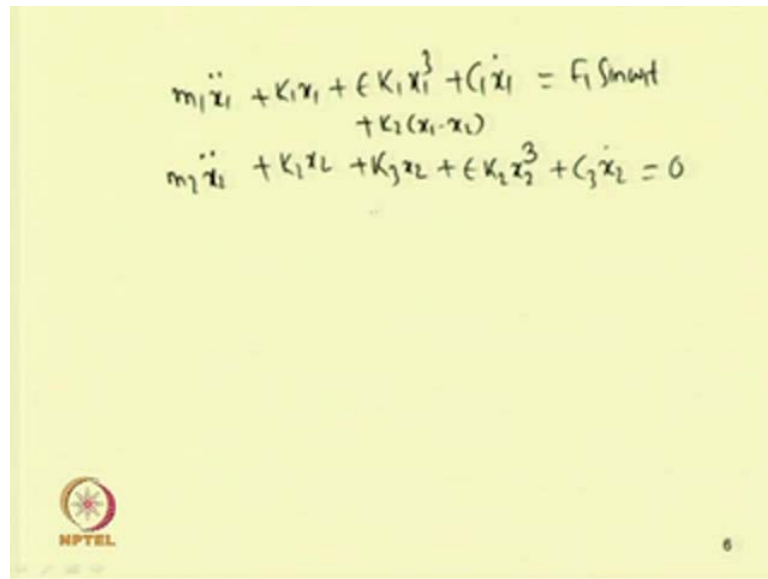 m₁ẍ₁ + K₁x₁ + ϵ K₁x₁³ + C₁ẋ₁ = F₁ Sinωt
+ K₂(x₁-x₂)
m₂ẍ₂ + K₂x₂ + K₃x₂ + ϵ K₂x₂³ + C₃ẋ₂ = 0
NPTEL
6